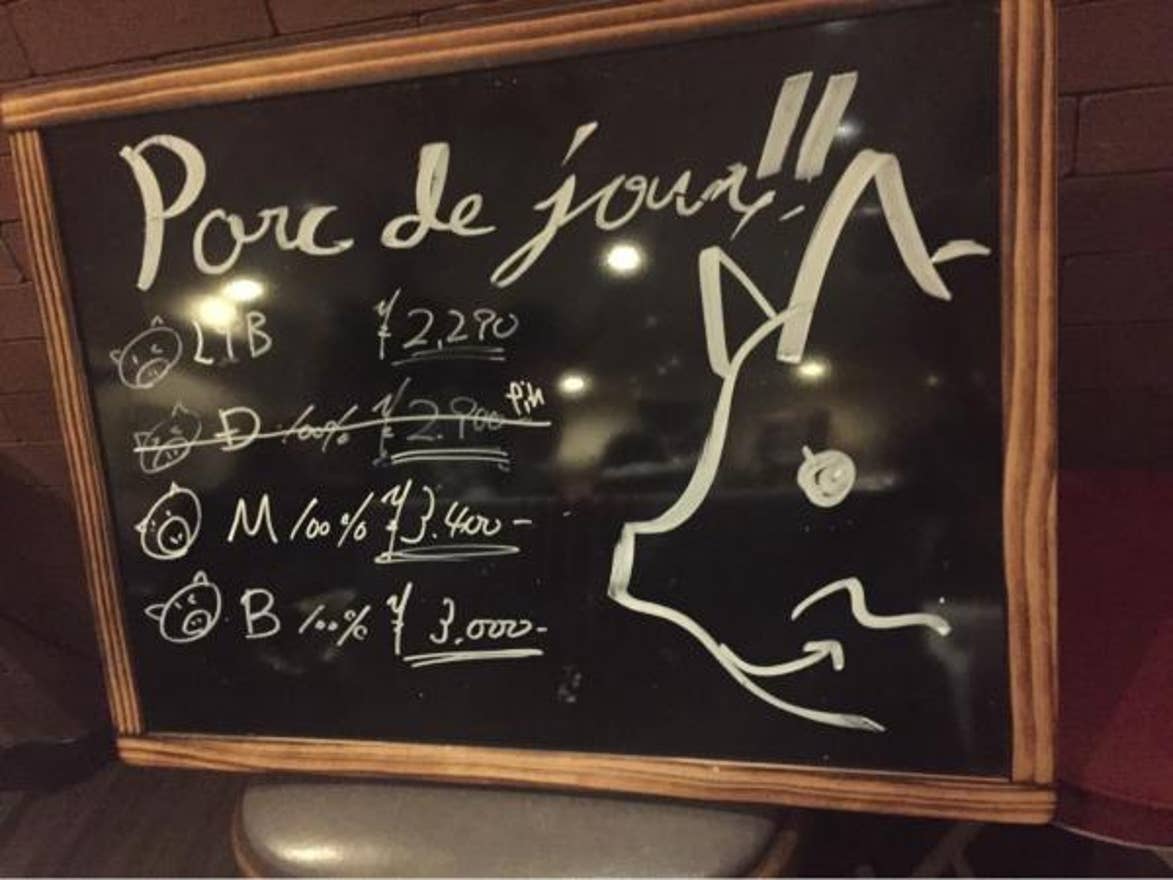 Porc de jour!!
LYB ¥2,290
D 100% ¥2.900 fin
M 100% ¥3.400-
B 100% ¥3.000-